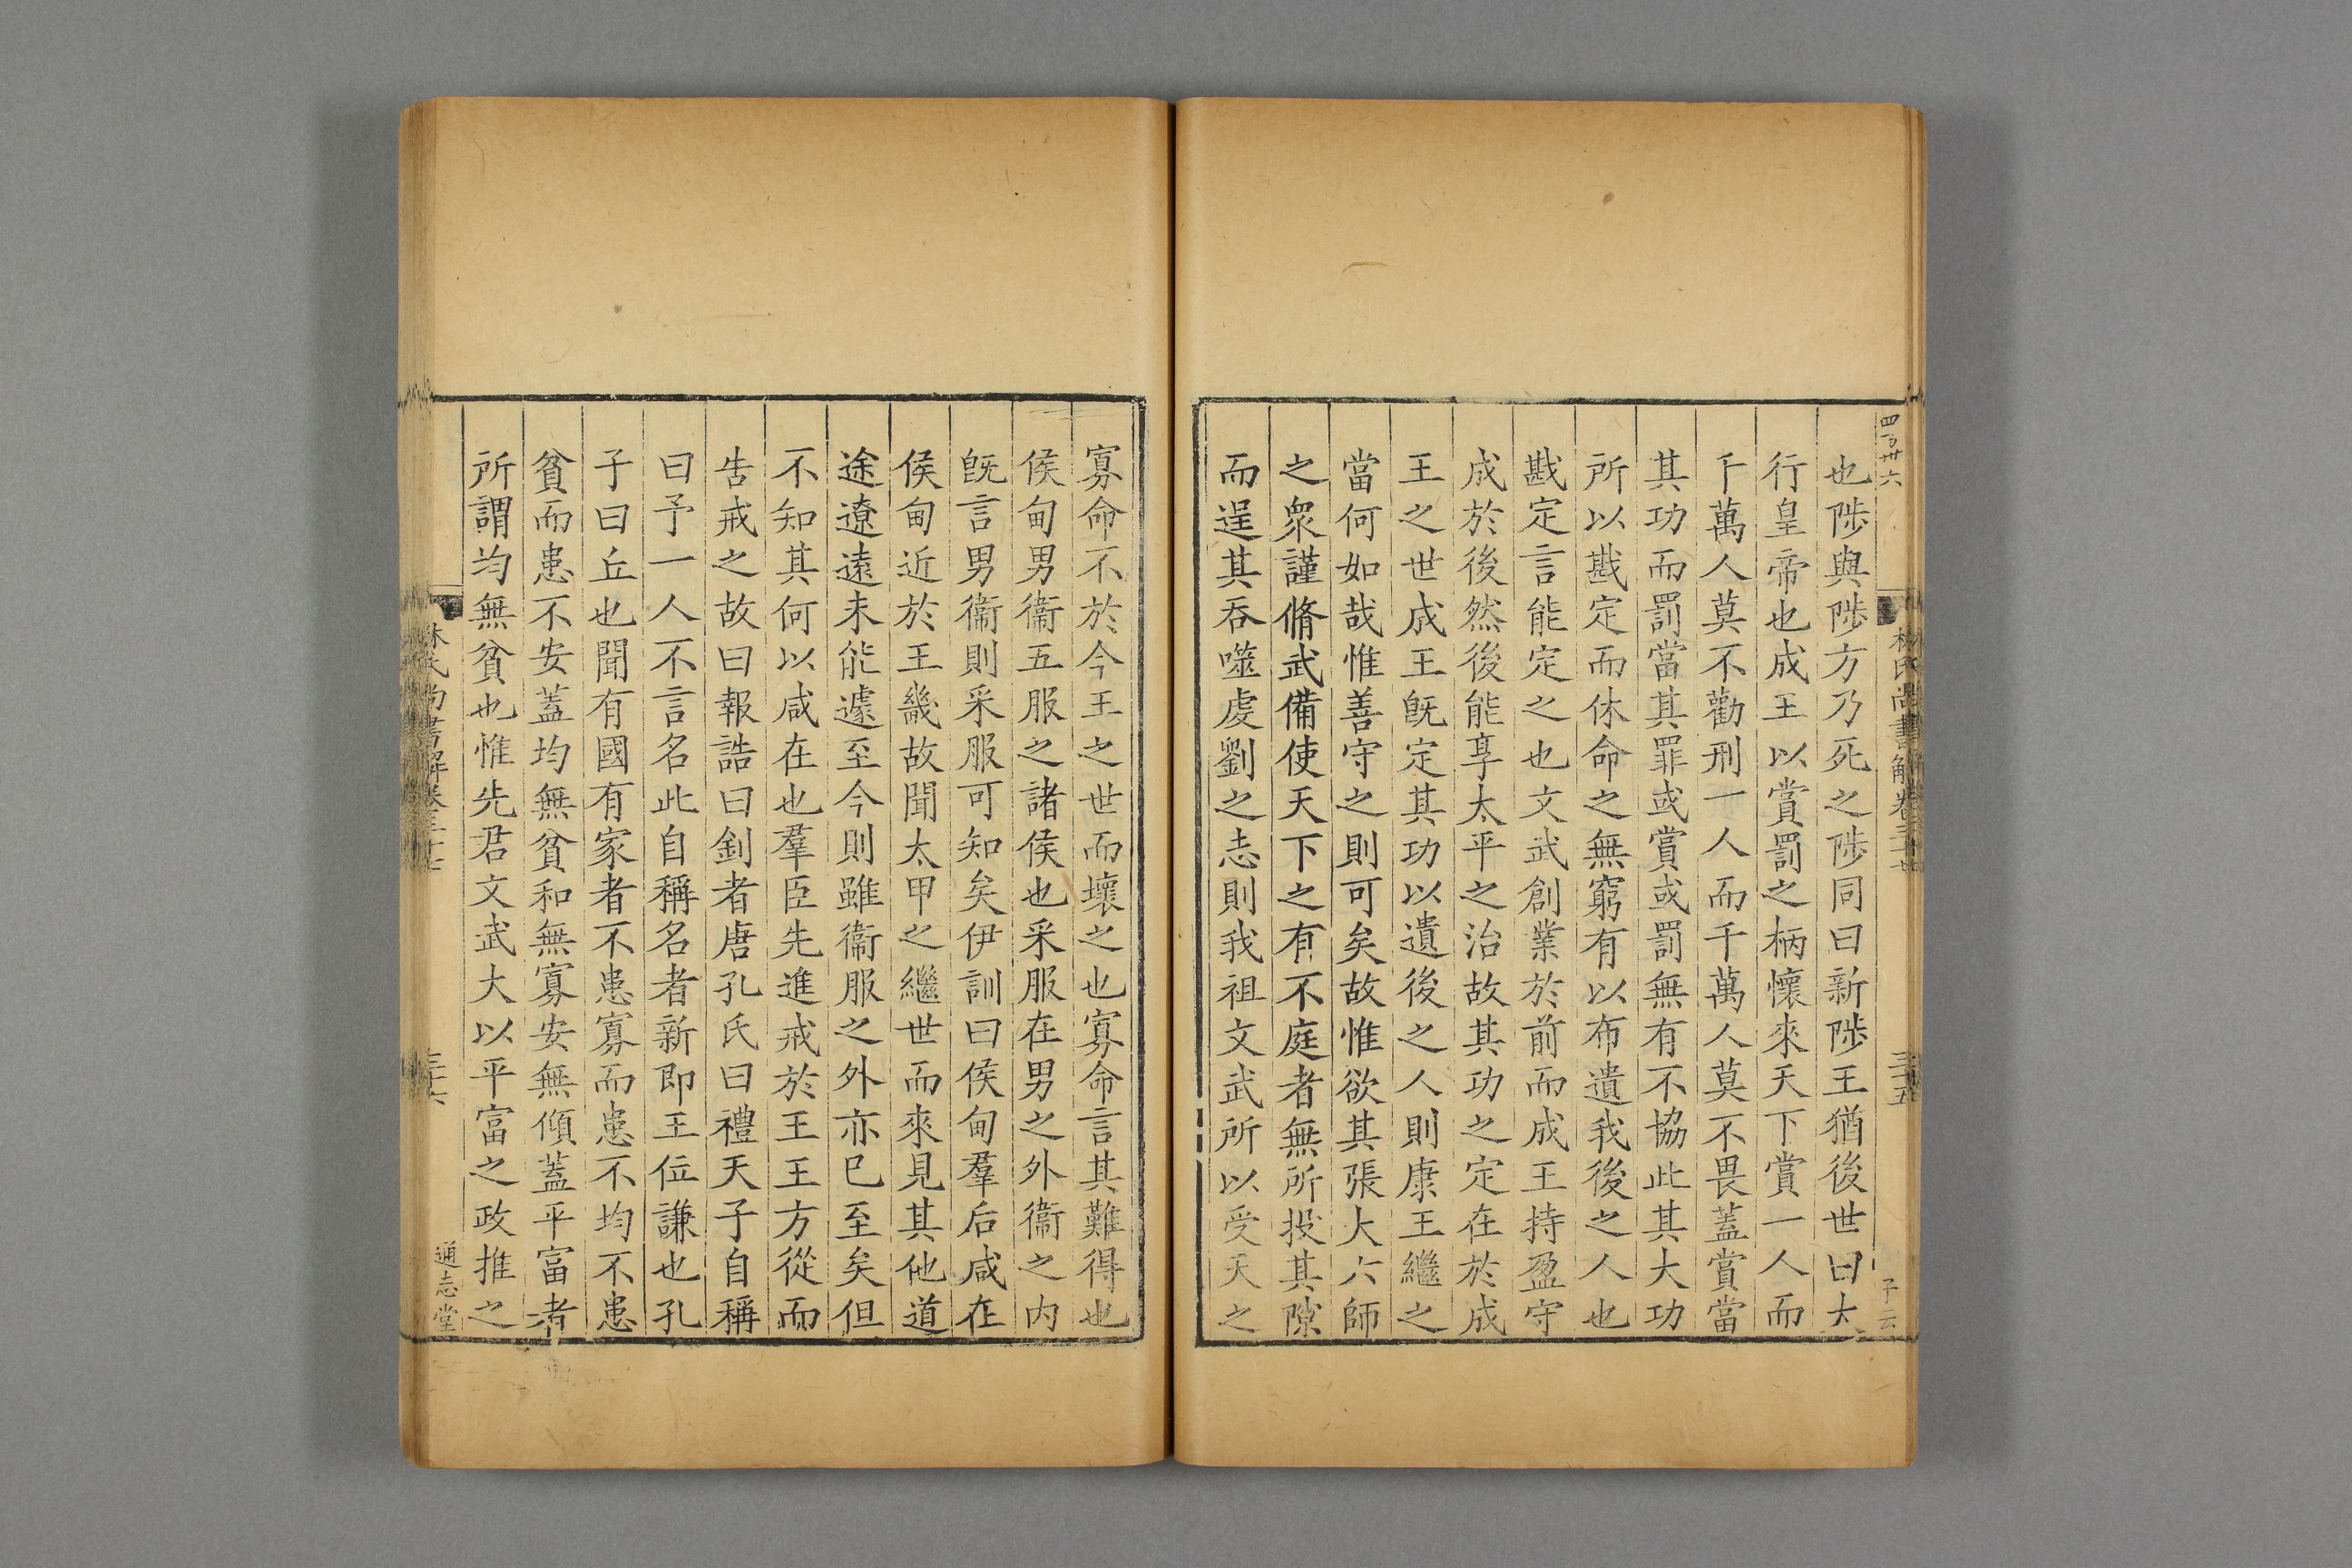 也陟與陟方乃死之陟同曰新陟王猶後世曰大
行皇帝也成王以賞罰之柄懷來天下賞一人而
千萬人莫不勸刑一人而千萬人莫不畏蓋賞當
其功而罰當其罪或賞或罰無有不協此其大功
所以戡定而休命之無窮有以布遺我後之人也
戡定言能定之也文武創業於前而成王持盈守
成於後然後能享太平之治故其功之定在於成
王之世成王旣定其功以遺後之人則康王繼之
當何如哉惟善守之則可矣故惟欲其張大六師
之衆謹脩武備使天下之有不庭者無所投其隙
而逞其吞噬虔劉之志則我祖文武所以受天之
寡命不於今王之世而壞之也寡命言其難得也
侯甸男衞五服之諸侯也采服在男之外衞之內
旣言男衞則采服可知矣伊訓曰侯甸羣后咸在
侯甸近於王畿故聞太甲之繼世而來見其他道
途遼遠未能遽至今則雖衞服之外亦已至矣但
不知其何以咸在也羣臣先進戒於王王方從而
告戒之故曰報誥曰釗者唐孔氏曰禮天子自稱
曰予一人不言名此自稱名者新即王位謙也孔
子曰丘也聞有國有家者不患寡而患不均不患
貧而患不安蓋均無貧和無寡安無傾蓋平富者
所謂均無貧也惟先君文武大以平富之政推之
林氏尚書解卷三十七
三十六
通志堂